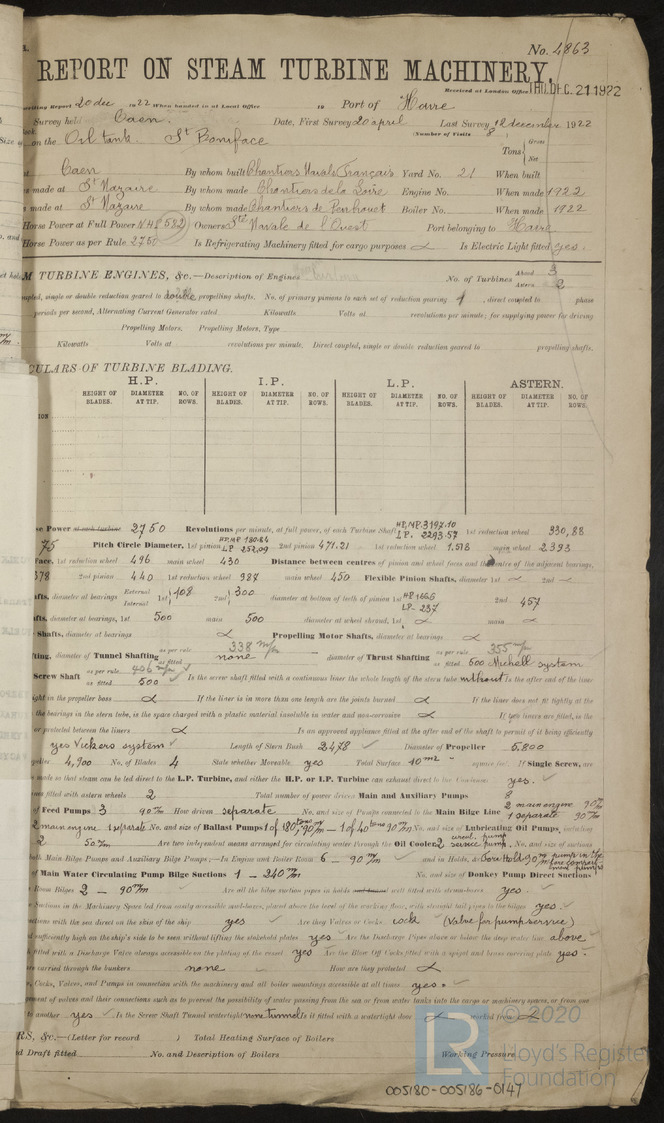 No. 4863
REPORT ON STEAM TURBINE MACHINERY.
Received at London Office THU. DEC. 21 1922
Writing Report 20 dec 1922 When handed in at Local Office 19 Port of Havre
Survey held Caen. Date, First Survey 20 april Last Survey 12 december 1922
(Number of Visits 8)
on the Oil tank. St Boniface Tons Gross Net
Caen By whom built Chantiers Navals Français Yard No. 21 When built
s made at St Nazaire By whom made Chantiers de la Loire Engine No. When made 1922
s made at St Nazaire By whom made Chantiers de Penhouet Boiler No. When made 1922
Horse Power at Full Power Owners Sté Navale de l'Ouest Port belonging to Havre
Horse Power as per Rule 2750 Is Refrigerating Machinery fitted for cargo purposes Is Electric Light fitted yes.
M TURBINE ENGINES, &c.—Description of Engines No. of Turbines Ahead 3 Astern 2
upled, single or double reduction geared to double propelling shafts. No. of primary pinions to each set of reduction gearing 4, direct coupled to phase
periods per second, Alternating Current Generator rated Kilowatts Volts at revolutions per minute; for supplying power for driving
Propelling Motors, Propelling Motors, Type
Kilowatts Volts at revolutions per minute. Direct coupled, single or double reduction geared to propelling shafts.
CULARS OF TURBINE BLADING.
H.P. I.P. L.P. ASTERN.
HEIGHT OF BLADES. DIAMETER AT TIP. NO. OF ROWS. HEIGHT OF BLADES. DIAMETER AT TIP. NO. OF ROWS. HEIGHT OF BLADES. DIAMETER AT TIP. NO. OF ROWS. HEIGHT OF BLADES. DIAMETER AT TIP. NO. OF ROWS.
ION
se Power at each turbine 2750 Revolutions per minute, at full power, of each Turbine Shaft HP, MP. 3197.10 LP. 2293.57 1st reduction wheel 330,88
75 Pitch Circle Diameter, 1st pinion HP, MP 180.84 LP 252,09 2nd pinion 471.21 1st reduction wheel 1.578 main wheel 2393
Face, 1st reduction wheel 496 main wheel 430 Distance between centres of pinion and wheel faces and the centre of the adjacent bearings,
378 2nd pinion 440 1st reduction wheel 387 main wheel 450 Flexible Pinion Shafts, diameter 1st 2nd
afts, diameter at bearings External Internal 1st 108 2nd 300 diameter at bottom of teeth of pinion 1st HP 166.6 LP- 237 2nd 457
afts, diameter at bearings, 1st 500 main 500 diameter at wheel shroud, 1st main
Shafts, diameter at bearings Propelling Motor Shafts, diameter at bearings
fting, diameter of Tunnel Shafting as per rule 338 m/m as fitted none diameter of Thrust Shafting as per rule 355 m/m as fitted 500 Michell system
Screw Shaft as per rule 406 m/m as fitted 500 Is the screw shaft fitted with a continuous liner the whole length of the stern tube without Is the after end of the liner
ight in the propeller boss If the liner is in more than one length are the joints burned If the liner does not fit tightly at the
the bearings in the stern tube, is the space charged with a plastic material insoluble in water and non-corrosive If two liners are fitted, is the
or protected between the liners Is an approved appliance fitted at the after end of the shaft to permit of it being efficiently
yes Vickers system Length of Stern Bush 2478 Diameter of Propeller 5,800
4,900 No. of Blades 4 State whether Moveable yes Total Surface 10 m2 square feet If Single Screw, are
made so that steam can be led direct to the L.P. Turbine, and either the H.P. or I.P. Turbine can exhaust direct to the Condenser yes.
nes fitted with astern wheels 2 Total number of power driven Main and Auxiliary Pumps 8
of Feed Pumps 3 90 m/m How driven separate No. and size of Pumps connected to the Main Bilge Line 2 main engine 90 m/m 1 separate 90 m/m
2 main engine 1 separate No. and size of Ballast Pumps 1 of 120 tons, 90 m/m – 1 of 40 tons 90 m/m No. and size of Lubricating Oil Pumps, including
2 50 m/m Are two independent means arranged for circulating water through the Oil Cooler 2 circul. pump service pump. No. and size of suctions
both Main Bilge Pumps and Auxiliary Bilge Pumps;—In Engine and Boiler Room 6 – 90 m/m and in Holds, &c. Fore Hold 90 m/m pump in the
of Main Water Circulating Pump Bilge Suctions 1 – 240 m/m No. and size of Donkey Pump Direct Suctions
Room Bilges 2 – 90 m/m Are all the bilge suction pipes in holds and tunnel well fitted with strum-boxes yes.
Suctions in the Machinery Space led from easily accessible mud-boxes, placed above the level of the working floor, with straight tail pipes to the bilges yes.
ections with the sea direct on the skin of the ship yes Are they Valves or Cocks cock (Valve for pump service)
d sufficiently high on the ship's side to be seen without lifting the stokehold plates yes Are the Discharge Pipes above or below the deep water line above
h fitted with a Discharge Valve always accessible on the plating of the vessel yes Are the Blow Off Cocks fitted with a spigot and brass covering plate yes.
are carried through the bunkers none How are they protected
, Cocks, Valves, and Pumps in connection with the machinery and all boiler mountings accessible at all times yes.
gement of valves and their connections such as to prevent the possibility of water passing from the sea or from water tanks into the cargo or machinery spaces, or from one
to another yes Is the Screw Shaft Tunnel watertight none tunnel Is it fitted with a watertight door worked from
RS, &c.—(Letter for record ) Total Heating Surface of Boilers
d Draft fitted No. and Description of Boilers Working Pressure
LR © 2020 Lloyd's Register Foundation
005180-005186-0147